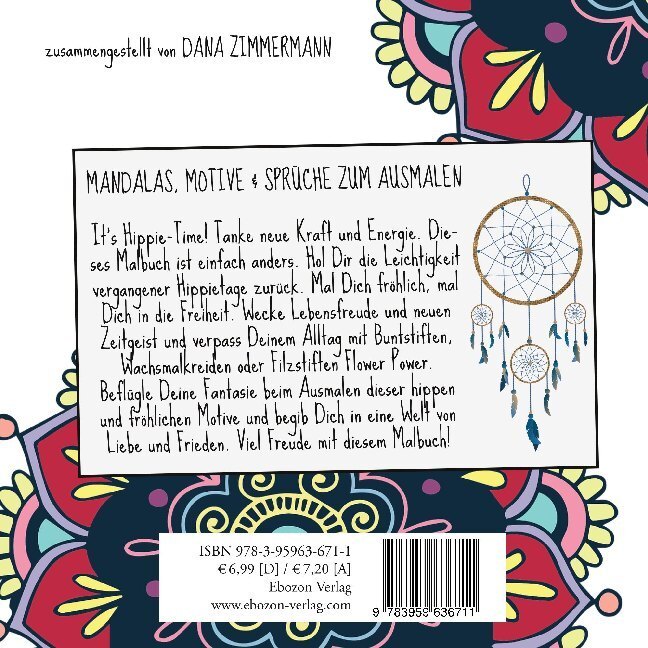 zusammengestellt von DANA ZIMMERMANN
MANDALAS, MOTIVE & SPRÜCHE ZUM AUSMALEN
It's Hippie-Time! Tanke neue Kraft und Energie. Die-
ses Malbuch ist einfach anders. Hol Dir die Leichtigkeit
vergangener Hippietage zurück. Mal Dich fröhlich, mal
Dich in die Freiheit. Wecke Lebensfreude und neuen
Zeitgeist und verpass Deinem Alltag mit Buntstiften,
Wachsmalkreiden oder Filzstiften Flower Power.
Beflügle Deine Fantasie beim Ausmalen dieser hippen
und fröhlichen Motive und begib Dich in eine Welt von
Liebe und Frieden. Viel Freude mit diesem Malbuch!
ISBN 978-3-95963-671-1
€ 6,99 [D] / € 7,20 [A]
Ebozon Verlag
www.ebozon-verlag.com
9 783959 636711